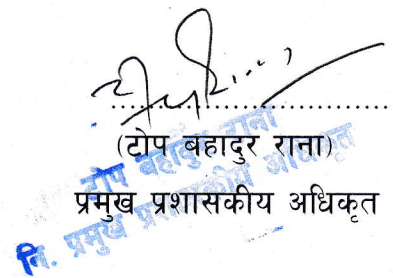 (टोप बहादुर राना)
प्रमुख प्रशासकीय अधिकृत
टोप बहादुर राना
नि. प्रमुख प्रशासकीय अधिकृत